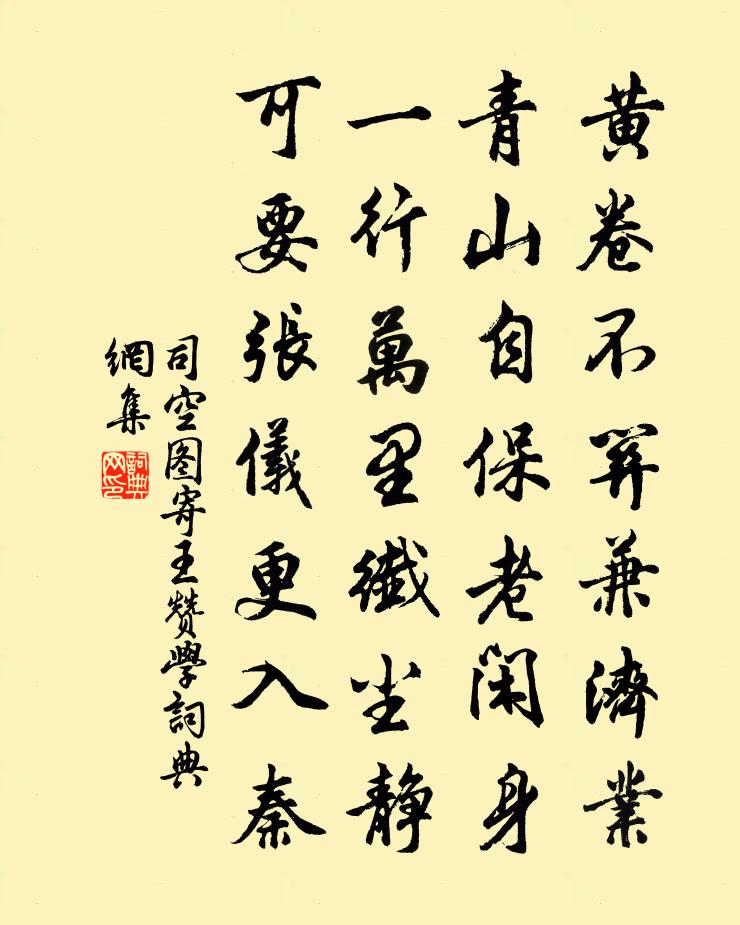 黄卷不關兼濟業
青山自保老閑身
一行萬里纖尘静
可要張儀更入秦
司空图寄王赞學詞典
網集
詞典
网印